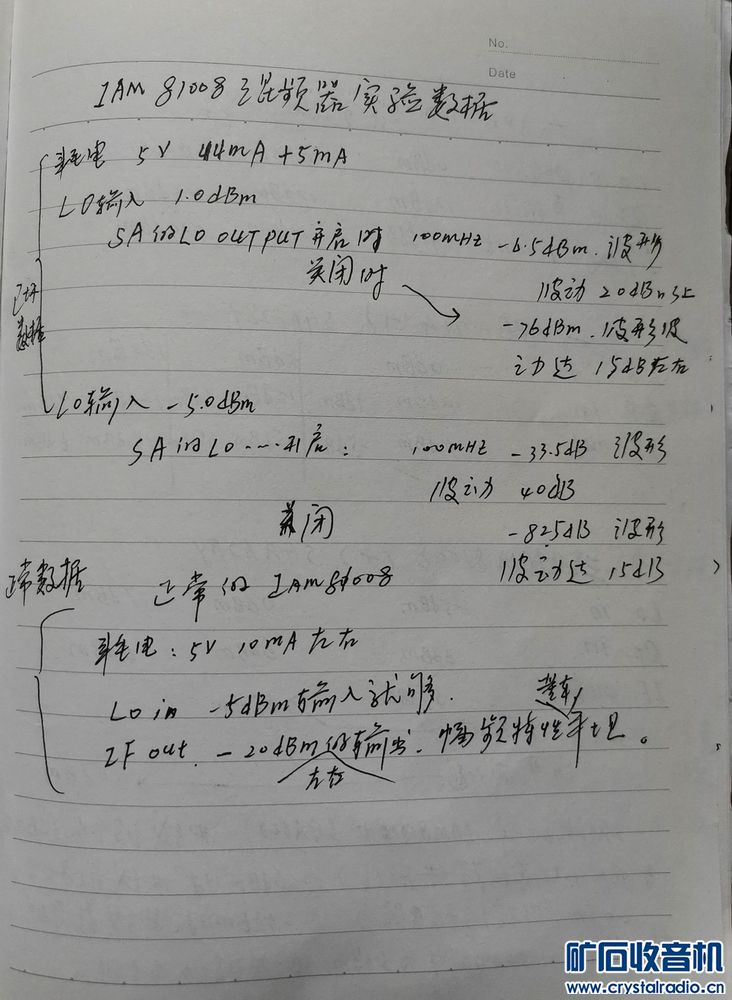 No.
Date
IAM 81008 混频器实验数据
耗电 5V 44mA+5mA
LO输入 1.0dBm
SA的LO OUTPUT 开启时 100MHz -6.5dBm. 波形
关闭时 波动 20dB以上
-76dBm. 波形波
动达 15dB左右
数据
LO输入 -5.0dBm
SA的LO....开启: 100MHz -33.5dB 波形
波动 40dB
关闭 -82.5dB 波形
波动达 15dB
正常数据 正常的 IAM81008
耗电: 5V 10mA左右
LO in -5dBm输入就够.
IF out. -20dBm左右的输出. 幅频特性平坦。
矿石收音机
www.crystalradio.cn